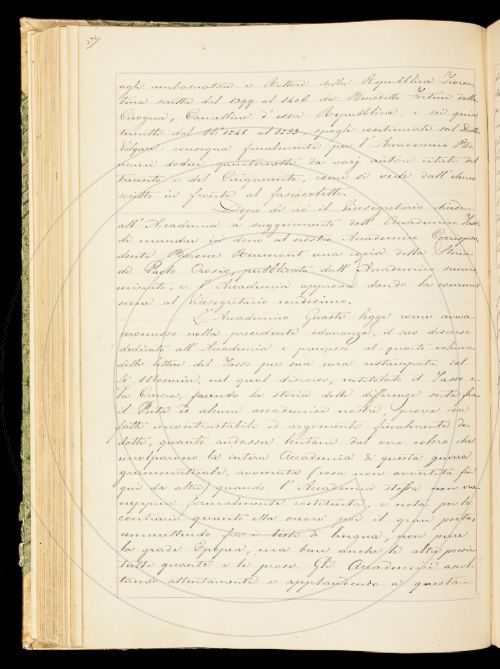 agli ambasciatori e Rettori della Repubblica Fioren-
tina scritta dal 1399 al 1406 da Benedetto Fortini dalla
Cicogna, Cancelliere d'essa Repubblica, e sei quin-
ternetti dal al spogli continuati sul Dott.
consegna finalmente per l'Accademico
dodici quinternetti da varj autori citati del
trecento e del Cinquecento, come si vede dall'
scritto in fronte al fascicoletto.
Dopo di ciò il Vicesegretario chiede
all'Accademia a suggerimento dell'Accademico
di mandar in dono al nostro Accademico Corrispon-
dente Reumont una copia della Storia
di Paolo Orosio pubblicata dall'Accademico
e l'Accademia approva dando la commis-
sione al Vicesegretario medesimo.
L'Accademico Guasti legge come aveva
promesso nella precedente adunanza, il suo discorso
dedicato all'Accademia e premesso al quarto volume
delle lettere del Tasso per sua cura ristampata dal
Le Monnier, nel qual discorso, intitolato il Tasso e
la Crusca, facendo la storia delle differenze nate fra
il Poeta e alcuni accademici nostri, prova con
fatti incontrastabili ed argomenti finalmente de-
dotti, quanto andasser lontani dal vero coloro che
incolparono la intera Accademia di questa guerra
grammaticale, avvenuta (cosa non avvertita fin
qui da altri) quando l'Accademia stessa non era
neppure formalmente costituita, e nota per lo
contrario quanto ella onorò poi il gran poeta,
ammettendo fra i testi di lingua, non pure
la grande Epopea, ma bene anche le altre poesie
tutte quante e le prose. Gli Accademici ascol-
tando attentamente e applaudendo a questa